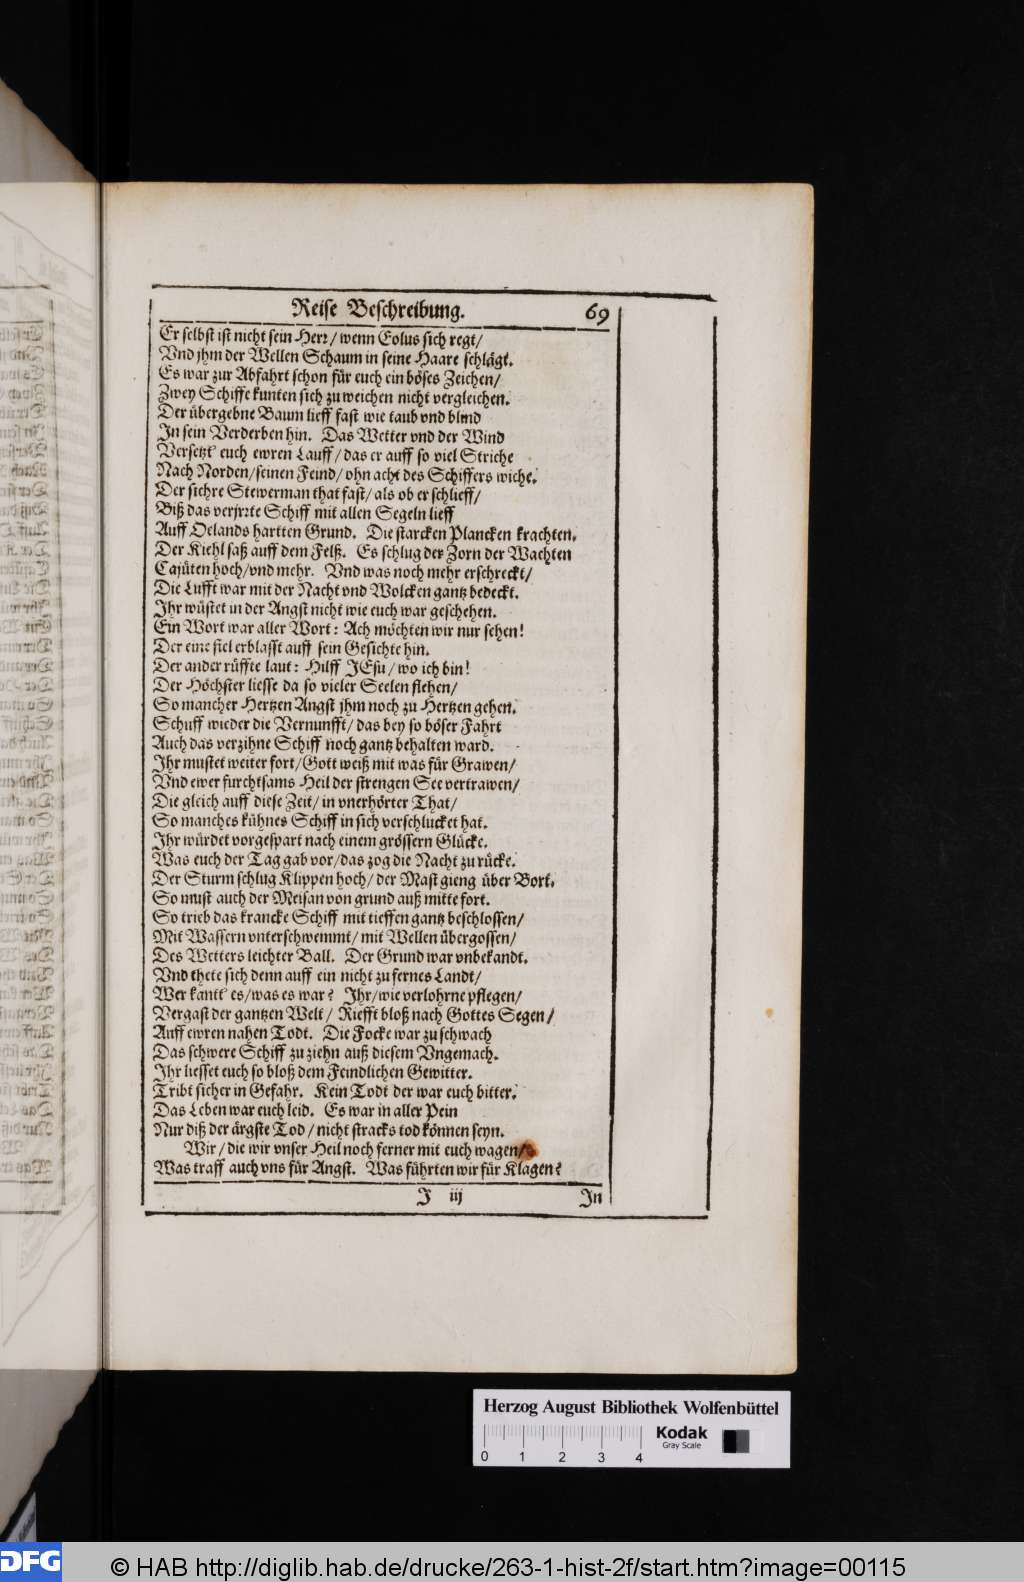 Reise Beschreibung. 69
Er selbst ist nicht sein Herr/ wenn Eolus sich regt/
Vnd jhm der Wellen Schaum in seine Haare schlägt.
Es war zur Abfahrt schon für euch ein böses Zeichen/
Zwey Schiffe kunten sich zu weichen nicht vergleichen.
Der übergebne Baum lieff fast wie taub vnd blind
In sein Verderben hin. Das Wetter vnd der Wind
Versetzt euch ewren Lauff/ das er auff so viel Striche
Nach Norden/ seinen Feind/ ohn acht des Schiffers wiche.
Der sichre Stewerman that fast/ als ob er schlieff/
Biß das verjrrte Schiff mit allen Segeln lieff
Auff Oelands hartten Grund. Die starcken Plancken krachten.
Der Kiehl saß auff dem Felß. Es schlug der Zorn der Wachten
Cajüten hoch/ vnd mehr. Vnd was noch mehr erschreckt/
Die Lufft war mit der Nacht vnd Wolcken gantz bedeckt.
Ihr wüstet in der Angst nicht wie euch war geschehen.
Ein Wort war aller Wort: Ach möchten wir nur sehen!
Der eine fiel erblasst auff sein Gesichte hin.
Der ander rüffte laut: Hilff JEsu/ wo ich bin!
Der Höchster liesse da so vieler Seelen flehen/
So mancher Hertzen Angst jhm noch zu Hertzen gehen.
Schuff wieder die Vernunfft/ das bey so böser Fahrt
Auch das verzihne Schiff noch gantz behalten ward.
Ihr mustet weiter fort/ Gott weiß mit was für Grawen/
Vnd ewer furchtsams Heil der strengen See vertrawen/
Die gleich auff diese Zeit/ in vnerhörter That/
So manches kühnes Schiff in sich verschlucket hat.
Ihr würdet vorgespart nach einem grössern Glücke.
Was euch der Tag gab vor/ das zog die Nacht zu rücke.
Der Sturm schlug Klippen hoch/ der Mast gieng über Bort.
So must auch der Meisan von grund auß mitte fort.
So trieb das krancke Schiff mit tieffen gantz beschlossen/
Mit Wassern vnterschwemmt/ mit Wellen übergossen/
Des Wetters leichter Ball. Der Grund war vnbekandt.
Vnd thete sich denn auff ein nicht zu fernes Landt/
Wer kantt es/ was es war? Ihr/ wie verlohrne pflegen/
Vergast der gantzen Welt/ Riefft bloß nach Gottes Segen/
Auff ewren nahen Todt. Die Focke war zu schwach
Das schwere Schiff zu ziehn auß diesem Vngemach.
Ihr liesset euch so bloß dem Feindlichen Gewitter.
Tribt sicher in Gefahr. Kein Todt der war euch bitter.
Das Leben war euch leid. Es war in aller Pein
Nur diß der ärgste Tod/ nicht stracks tod können seyn.
Wir/ die wir vnser Heil noch ferner mit euch wagen/
Was traff auch vns für Angst. Was führten wir für Klagen?
I iij In
Herzog August Bibliothek Wolfenbüttel
Kodak
Gray Scale
0 1 2 3 4
DFG © HAB http://diglib.hab.de/drucke/263-1-hist-2f/start.htm?image=00115